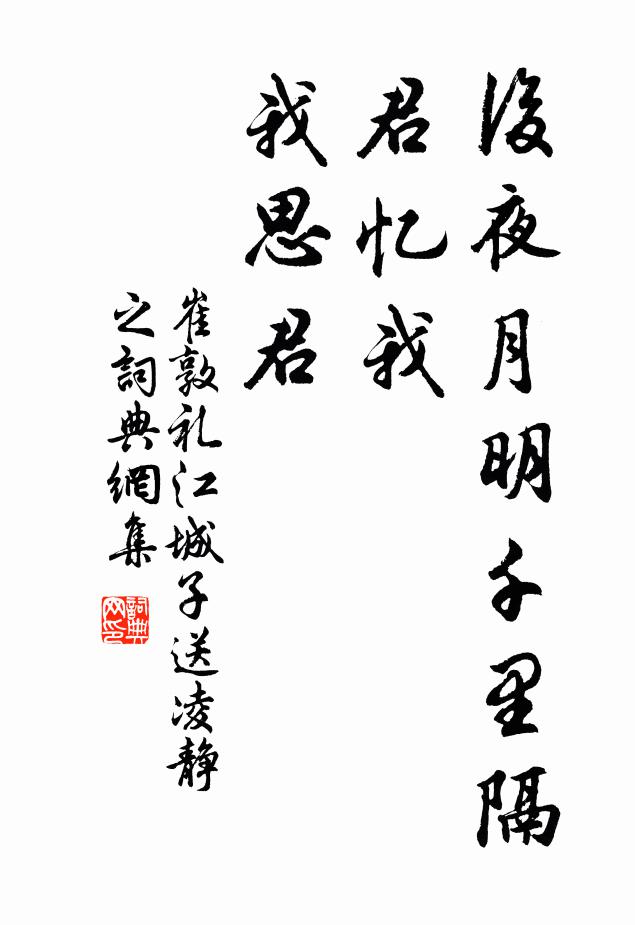 後夜月明千里隔
君忆我
我思君
崔敦礼江城子送凌静
之詞典網集
詞典
网印